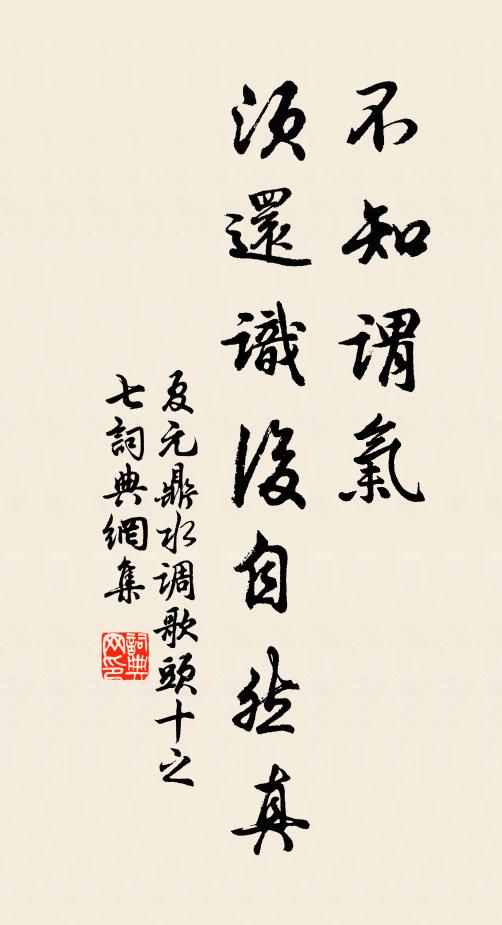 不知謂氣
須還識後自然真
夏元鼎水调歌頭十之
七詞典網集
詞典网印